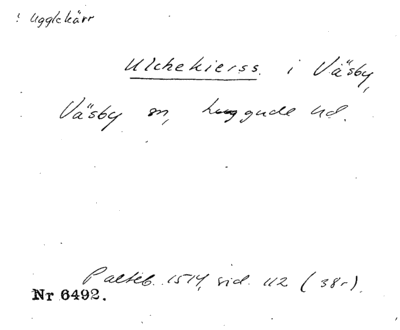 ! Ugglekärr
Ulchekierss. i Väsby,
Väsby sn, Luggude hd.
Palteb. 1514, sid. 112 (38r).
Nr 6492.